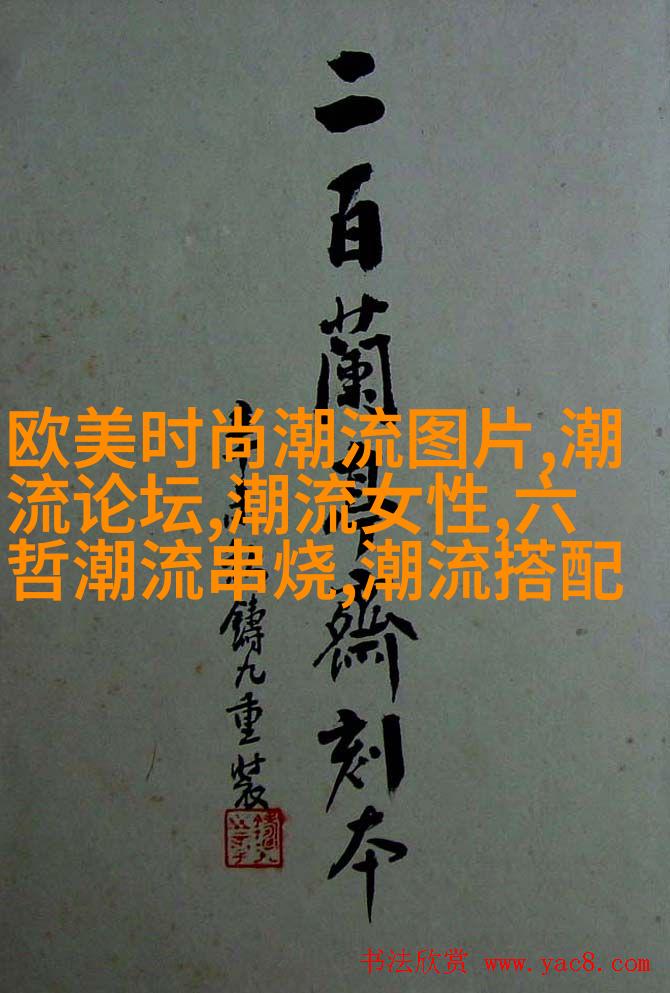 二百蘭亭齋刻本
鑄九重裝
欧美时尚潮流图片,潮
流论坛,潮流女性,六
哲潮流串烧,潮流搭配
书法欣赏 www.yac8.com